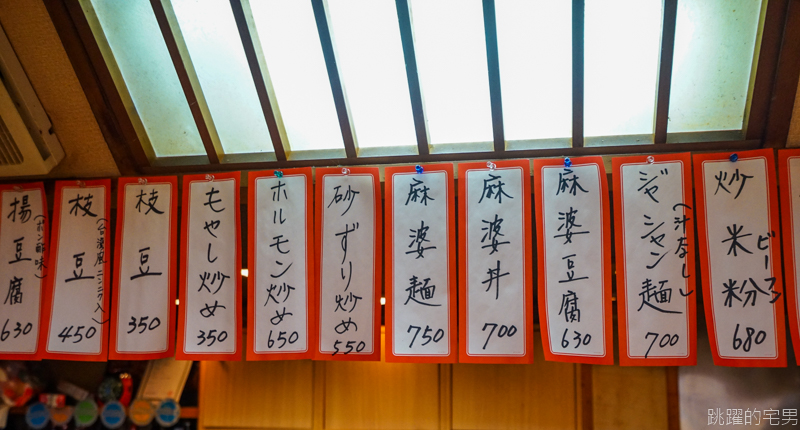 揚豆腐
(ポン酢味)
630
枝豆
(台湾風ニンニク入)
450
枝豆
350
もやし炒め
350
ホルモン炒め
650
砂ずり炒め
550
麻婆麺
750
麻婆丼
700
麻婆豆腐
630
ジャジャン麺
(汁なし)
700
炒米粉
ビーフン
680
跳躍的宅男